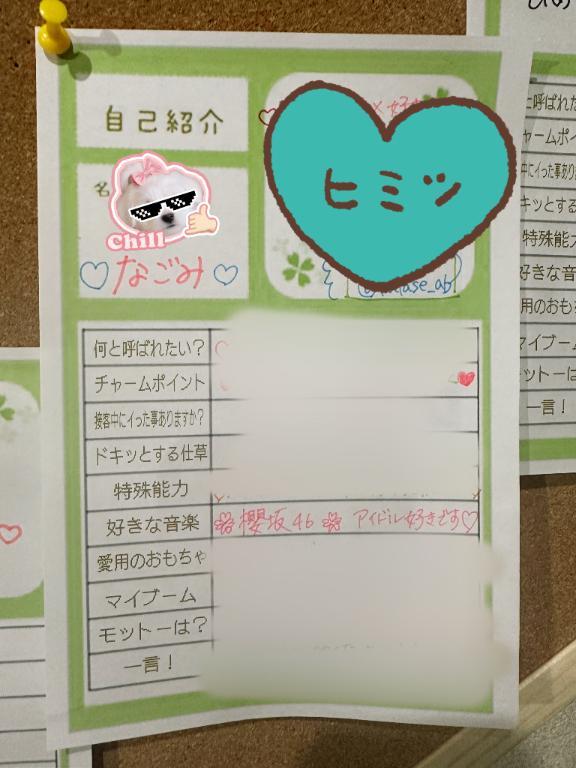 自己紹介
名
Chill
なごみ
ヒミツ
何と呼ばれたい?
チャームポイント
接客中にイった事ありますか?
ドキッとする仕草
特殊能力
好きな音楽 櫻坂46 アイドル好きです♡
愛用のおもちゃ
マイブーム
モットーは?
一言!
と呼ばれ
ャームポイ
中にイった事あり
キッとする
特殊能
好きな音
用のおも
マイブー
ットーは
一言!